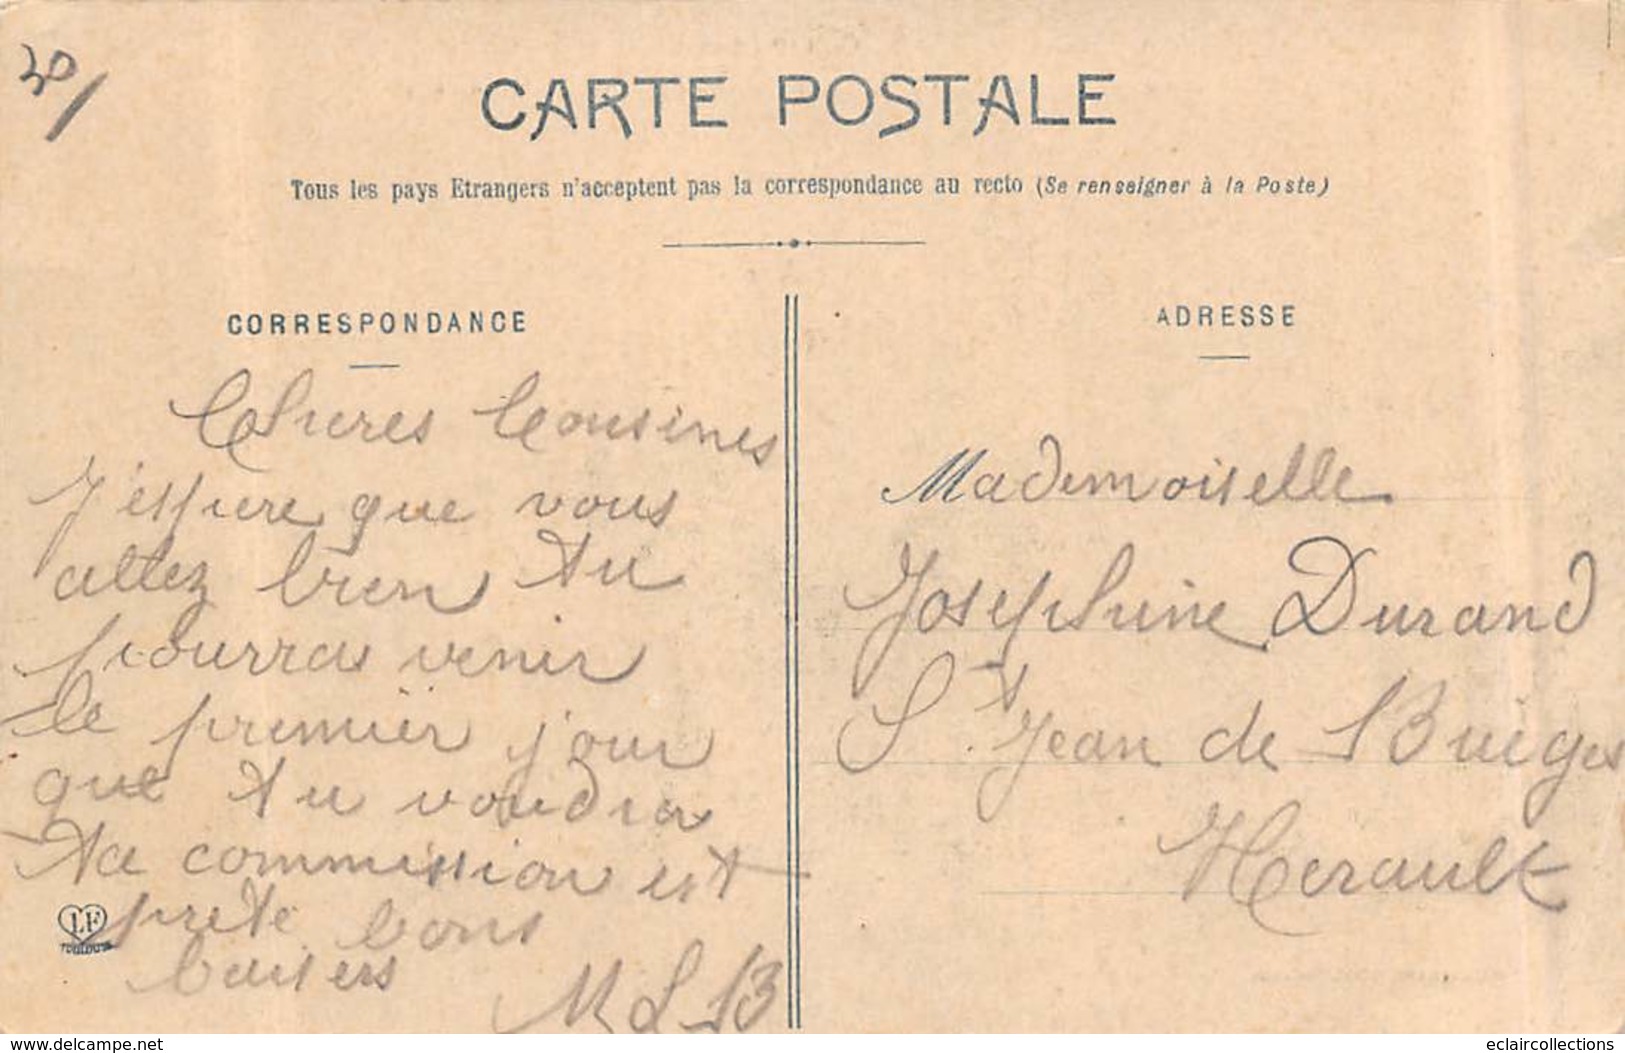 30/
CARTE POSTALE
Tous les pays Etrangers n'acceptent pas la correspondance au recto (Se renseigner à la Poste)
CORRESPONDANCE
Chères Cousines
J'espère que vous
allez bien Tu
pourras venir
le premier jour
que tu voudra
Ta commission est
prete bons
baisers
M L B
LF
TOULOUSE
ADRESSE
Mademoiselle
Josephine Durand
St Jean de Buiges
Herault
www.delcampe.net
eclaircollections